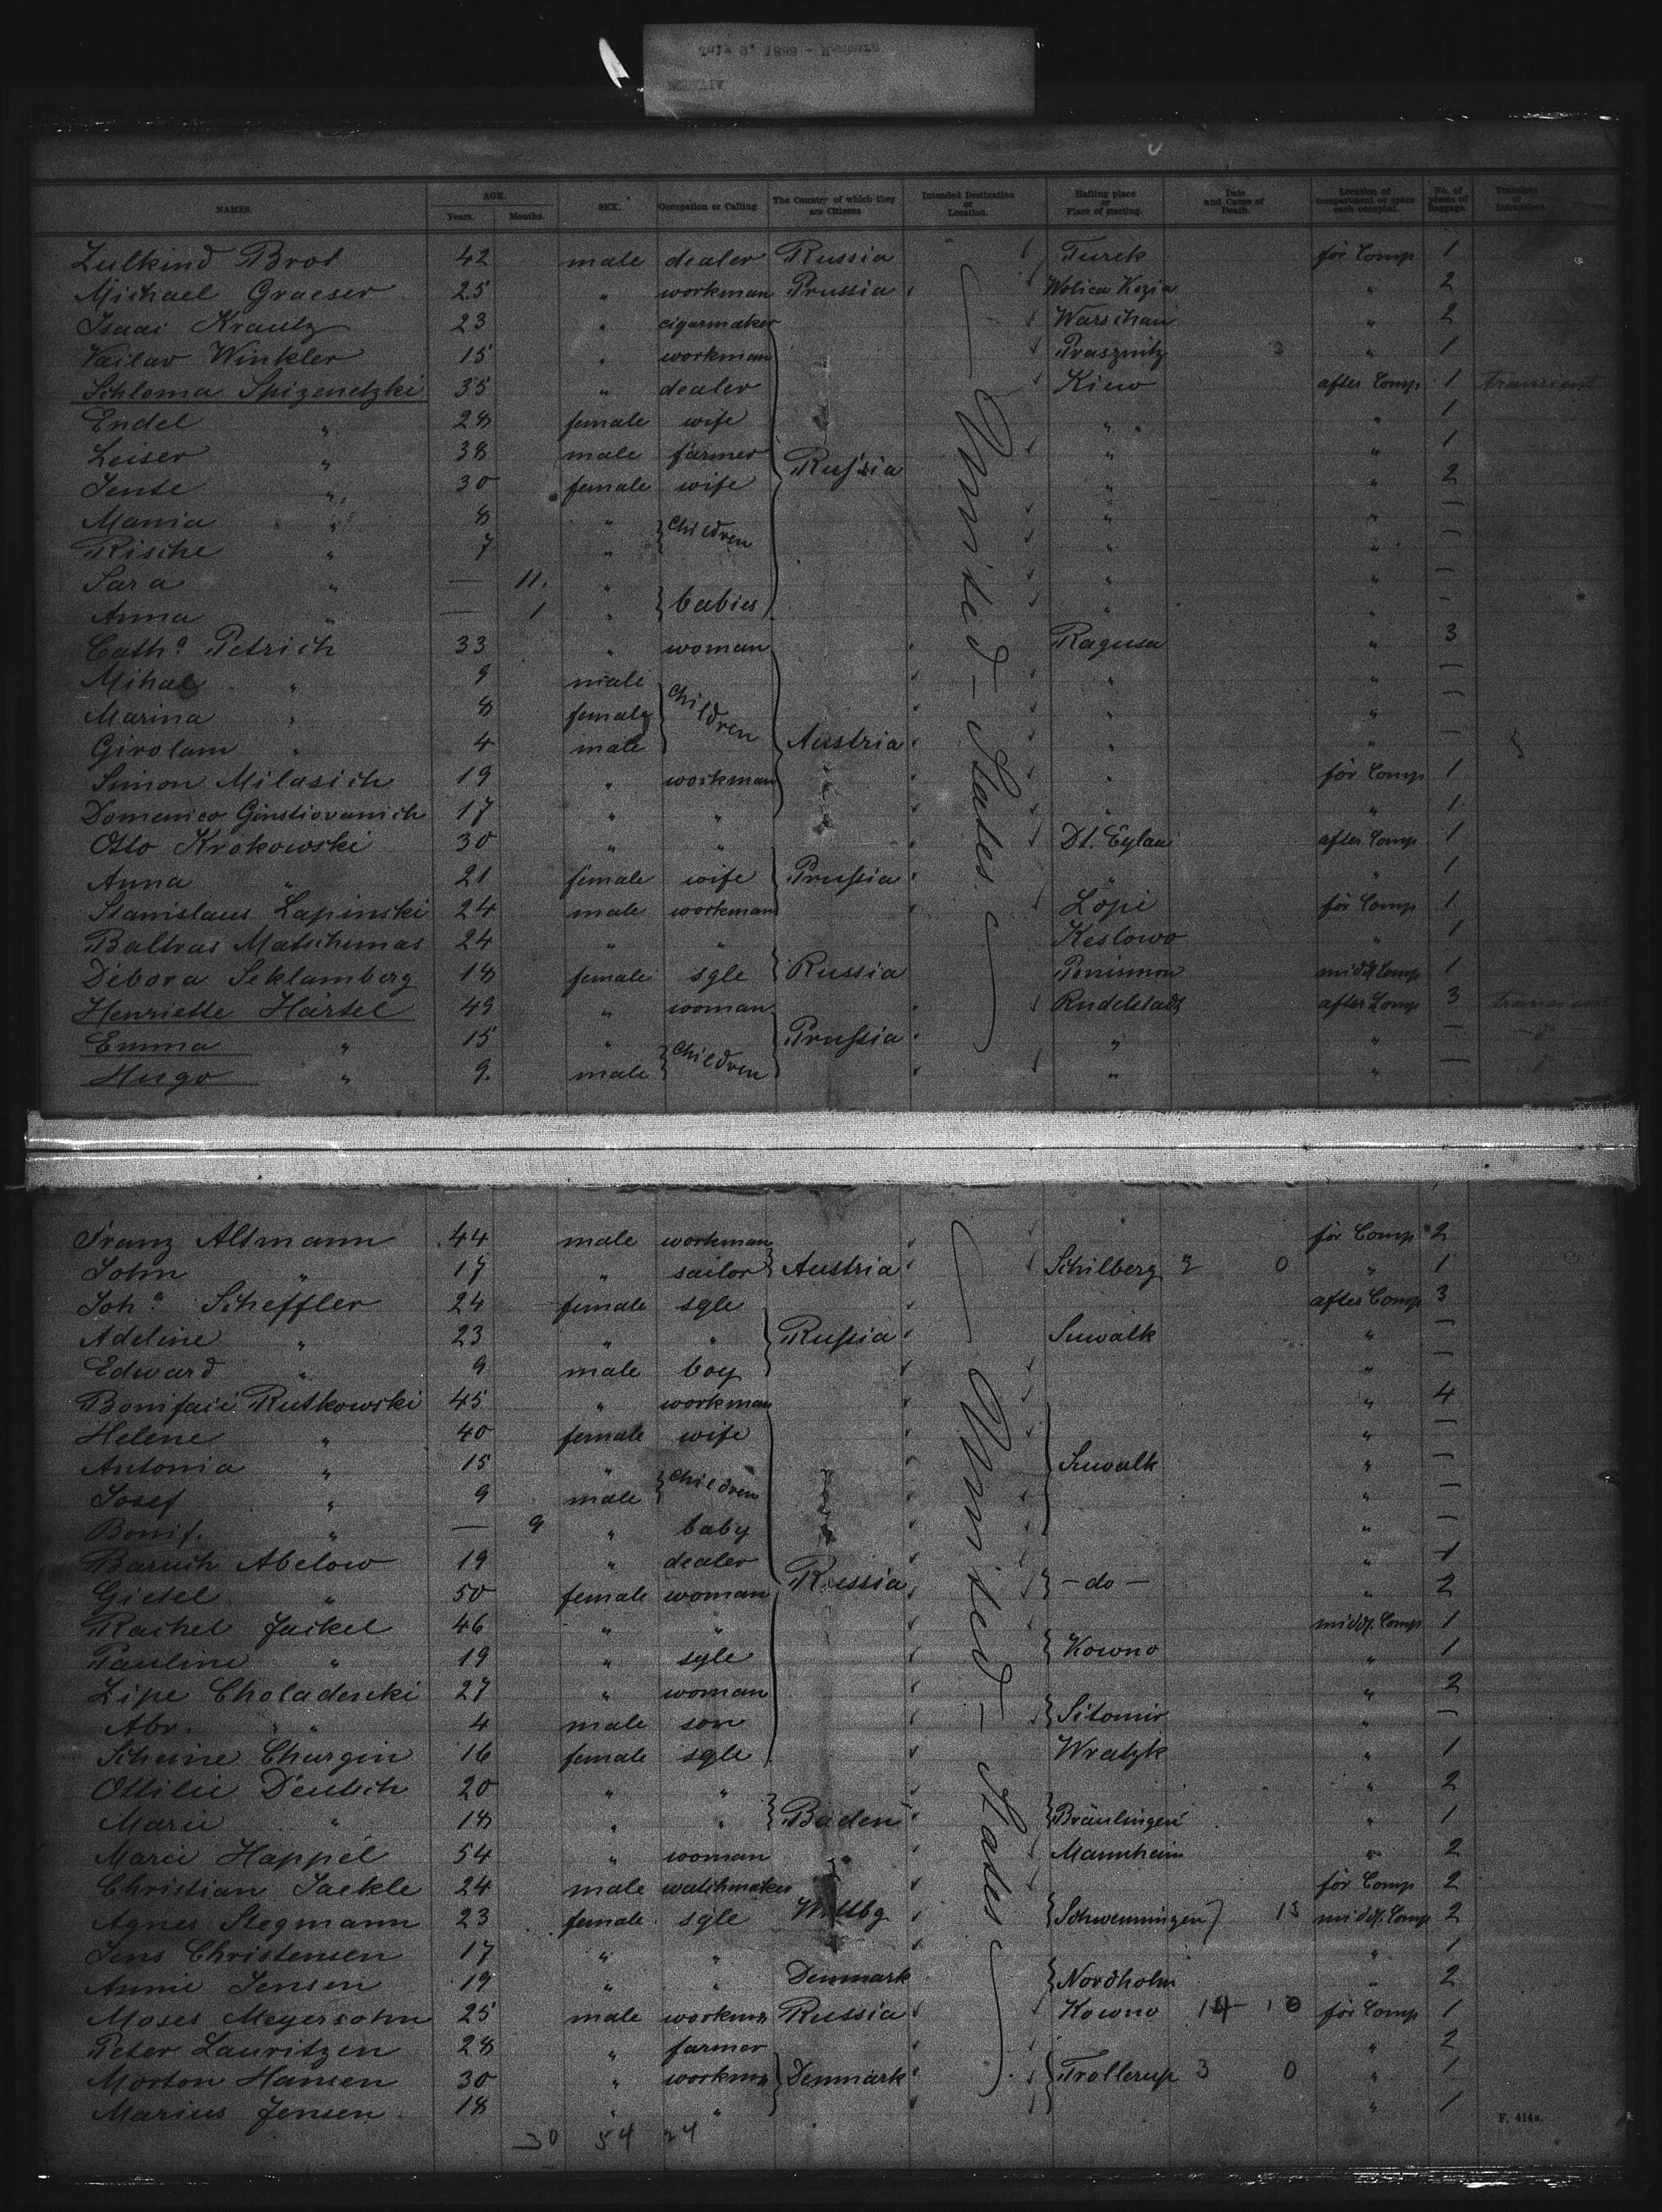 NAMES. AGE. Years. Months. SEX. Occupation or Calling The Country of which they are Citizens Intended Destination or Location. Hailing place or Place of starting. Date and Cause of Death. Location of compartment or space each occupied. No. of pieces of Baggage. Transient or Intransient.
Zulkind Brod 42 male dealer Russia Turek för Comp 1
Michael Graeser 25 " workman Prussia Wolica Kozia " 2
Isaac Krautz 23 " cigarmaker Warschau " 2
Vailav Winkler 15 " workman Prasznitz " 1
Schloma Spizenetzki 35 " dealer Kiew after Comp 1 transient
Endel " 28 female wife " " 1
Leiser " 38 male farmer Russia " " 1
Jente " 30 female wife " " 2
Mania " 8 " Children " " —
Rische " 7 " " " —
Sara " — 11. " babies " " —
Anna " — 1 " " " —
Cath.a Petrich 33 " woman Ragusa " 3
Mihal " 9 male Children " " —
Marina " 8 female " " —
Girolam " 4 male Austria " " —
Simon Milasich 19 " workman " för Comp 1
Domenico Ginstiovanich 17 " " " 1
Otto Krokowski 30 " " Dt. Eylau after Comp 1
Anna " 21 female wife Prussia " " 1
Stanislaus Lapinski 24 male workman Löpi för Comp 1
Baltras Matschunas 24 " " Keslowo " 1
Debora Seklamberg 18 female sgle Russia Ponismon middl Comp 1
Henriette Härtel 49 " woman Rudelstadt after Comp 3 transient
Emma " 15 " Children Prussia " " —
Hugo " 9. male " " —
United — States
Franz Altmann 44 male workman för Comp 2
John " 17 " sailor Austria Schilberg 2 0 " 1
Joh.a Scheffler 24 female sgle after Comp 3
Adeline " 23 " " Russia Suwalk " —
Edward " 9 male boy " —
Bonifaci Rutkowski 45 " workman " 4
Helene " 40 female wife " —
Antonia " 15 " Children Suwalk " —
Josef " 9 male " —
Bonif. " — 9 " baby " —
Baruch Abelow 19 " dealer " 1
Gietel " 50 female woman Russia — do — " 2
Rachel Jaikel 46 " " middl. Comp 1
Pauline " 19 " sgle Kowno " 1
Zipe Choladenki 27 " woman " 2
Abr. " 4 male son Sitomir " —
Scheine Churgin 16 female sgle Wratzk " 1
Ottilie Deutsch 20 " " " 2
Marie " 18 " " Baden Bräulingen " 1
Marie Happel 54 " woman Mannheim " 2
Christian Jaekle 24 male watchmaker för Comp 2
Agnes Stegmann 23 female sgle Wttbg Schwenningen 13 middl. Comp 2
Jens Christensen 17 " " " 1
Annie Jensen 19 " " Denmark Nordholm " 2
Moses Meyersohn 25 male workmn Russia Kowno 14 10 för Comp 1
Peter Lauritzen 28 " farmer " 2
Morton Hansen 30 " workmn Denmark Trollerup 3 0 " 1
Marius Jensen 18 " " " 1
United — States
F. 414a.
30 54 24